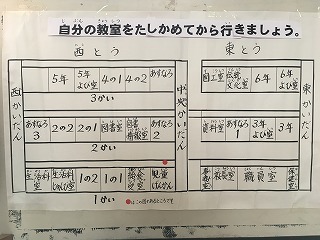 自分の教室をたしかめてから行きましょう。
西とう
東とう
西かいだん
中央かいだん
東かいだん
5年
5年よび室
4の1
4の2
あすなろ
図工室
6年よび室
6年
3かい
あすなろ3
2の2
2の1
図書室
あすなろ2
資料室
あすなろ1
3年よび室
3年
2かい
生活科室
1の2
1の1
児童げんかん
校長室
職員室
保健室
1かい